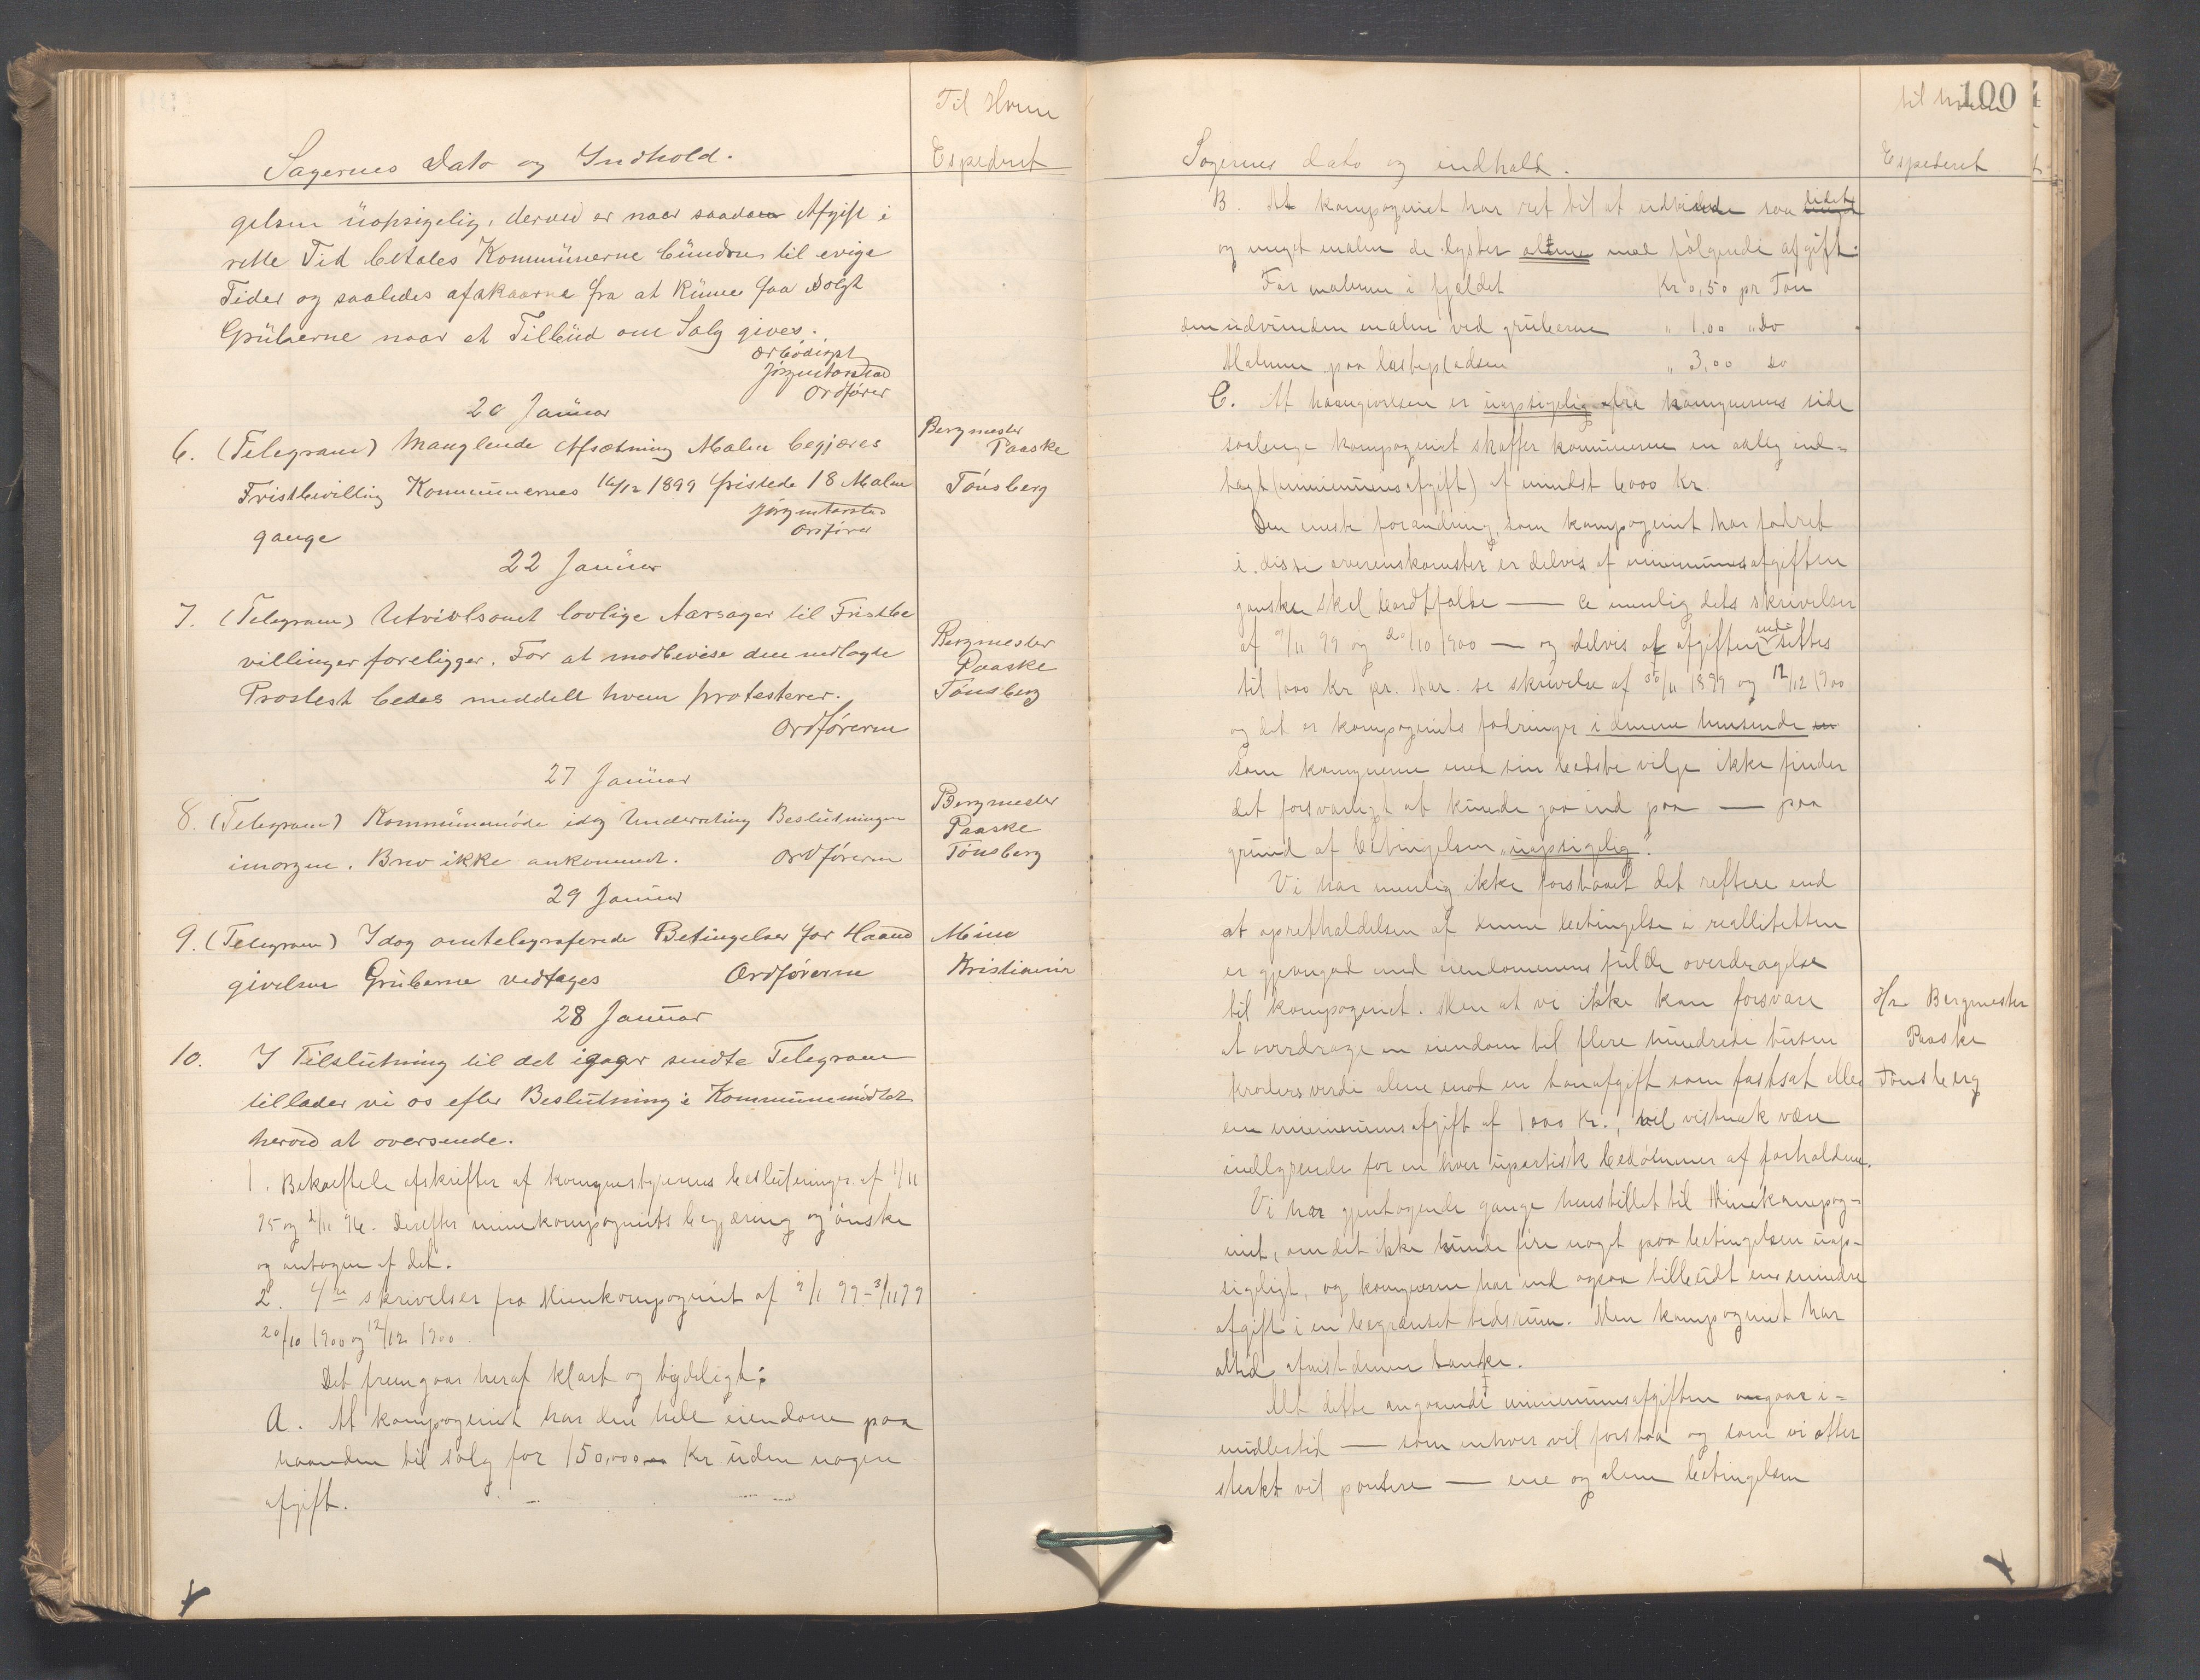 Til Hvem
Sagernes Dato og Indhold.
Expederet
gelsen uopsigelig, derved er naar saadan Afgift i
rette Tid betales Kommunerne bundne til evige
Tider og saaledes afskaarne fra at kunne faa solgt
Gruberne naar et Tilbud om Salg gives.
ærbødigst
Jørgen Torstad
Ordfører
20 Januar
6. (Telegram) Manglende Afsætning Malm begjæres
Fristbevilling Kommunernes 16/12 1899 fristede 18 Malm
gange
Jørgen Torstad
Ordfører
Bergmester
Paaske
Tønsberg
22 Januar
7. (Telegram) Utvivlsomt lovlige Aarsager til Fristbe
villinger foreligger. For at modbevise den nedlagte
Prostest bedes meddelt hvem protesterer.
Ordføreren
Bergmester
Paaske
Tønsberg
27 Januar
8. (Telegram) Kommunemøde idag Underretning Beslutningen
imorgen. Brev ikke ankommet. Ordføreren
Bergmester
Paaske
Tønsberg
29 Januar
9. (Telegram) Idag omtelegraferede Betingelser for Haand
givelsen Gruberne vedtages Ordføreren
Mine
Kristiania
28 Januar
10. I Tilslutning til det igaar sendte Telegram
tillader vi os efter Beslutning i Kommunemødet
herved at oversende.
1. Bekræftede afskrifter af komunestyrernes beslutninger af 1/11
95 og 2/11 96. Derefter minekompogniets begjæring og ønske
og antagen af det.
2. 4re skrivelser fra Minekompogniet af 9/1 99 - 3/11 99
20/10 1900 og 12/12 1900.
Det fremgaar heraf klart og tydeligt:
A. At kompogniet har den hele eiendom paa
haanden til salg for 150,000 Kr uden nogen
afgift.
til hvem 100
Sagernes dato og indhold.
Expederet
B. At kompogniet har ret til at udvinde saa lidet
og meget malm de lyster alene mod følgende afgift:
For malmen i fjeldet Kr 0,50 pr Ton
den udvunden malm ved gruberne " 1,00 " Do
Malmen paa lastepladsen " 3,00 Do
C. At haangivelsen er uopsigelig fra komunernes side
saalenge kompogniet skaffer komunerne en aarlig ind-
tægt (minimumsafgift) af mindst 6000 Kr.
Den eneste forandring, som kompogniet har fodret
i disse overenskomster er delvis at minimumsafgiften
ganske skal bordtfalde — se nemlig dets skrivelser
af 9/11 99 og 20/10 1900 — og delvis at afgiften nedsettes
til 1000 Kr pr. Aar. se skrivelse af 30/11 1899 og 12/12 1900
og det er kompogniets fodringer i denne henseende
som komunerne med sin bedste vilje ikke finder
det forsvarligt at kunde gaa ind paa — paa
grund af betingelsen "uopsigelig".
Vi har nemlig ikke forstaaet det rettere end
at opretholdelsen af denne betingelse i realliteten
er gjevngod med eiendommens fulde overdragelse
til kompogniet. Men at vi ikke kan forsvare
at overdrage en eiendom til flere hundrede tusen
kroners verdi alene mod en tonafgift som fastsat eller
en minimumsafgift af 1000 Kr., vil vistnok være
indlysende for en hver upartisk bedømmer af forholdene.
Hr. Bergmester
Paaske
Tønsberg
Vi har gjentagende gange henstillet til Minekompog-
niet, om det ikke kunde fire noget paa betingelsen uop-
sigeligt, og komunerne har ind ogsaa tilbudt en mindre
afgift i en begrænset tidsrum. Men kompogniet har
altid afvist denne tanke.
Alt dette angaaende minimumsafgiften angaar i-
midlertid — som enhver vil forstaa og som vi atter
sterkt vil pontere — ene og alene betingelsen